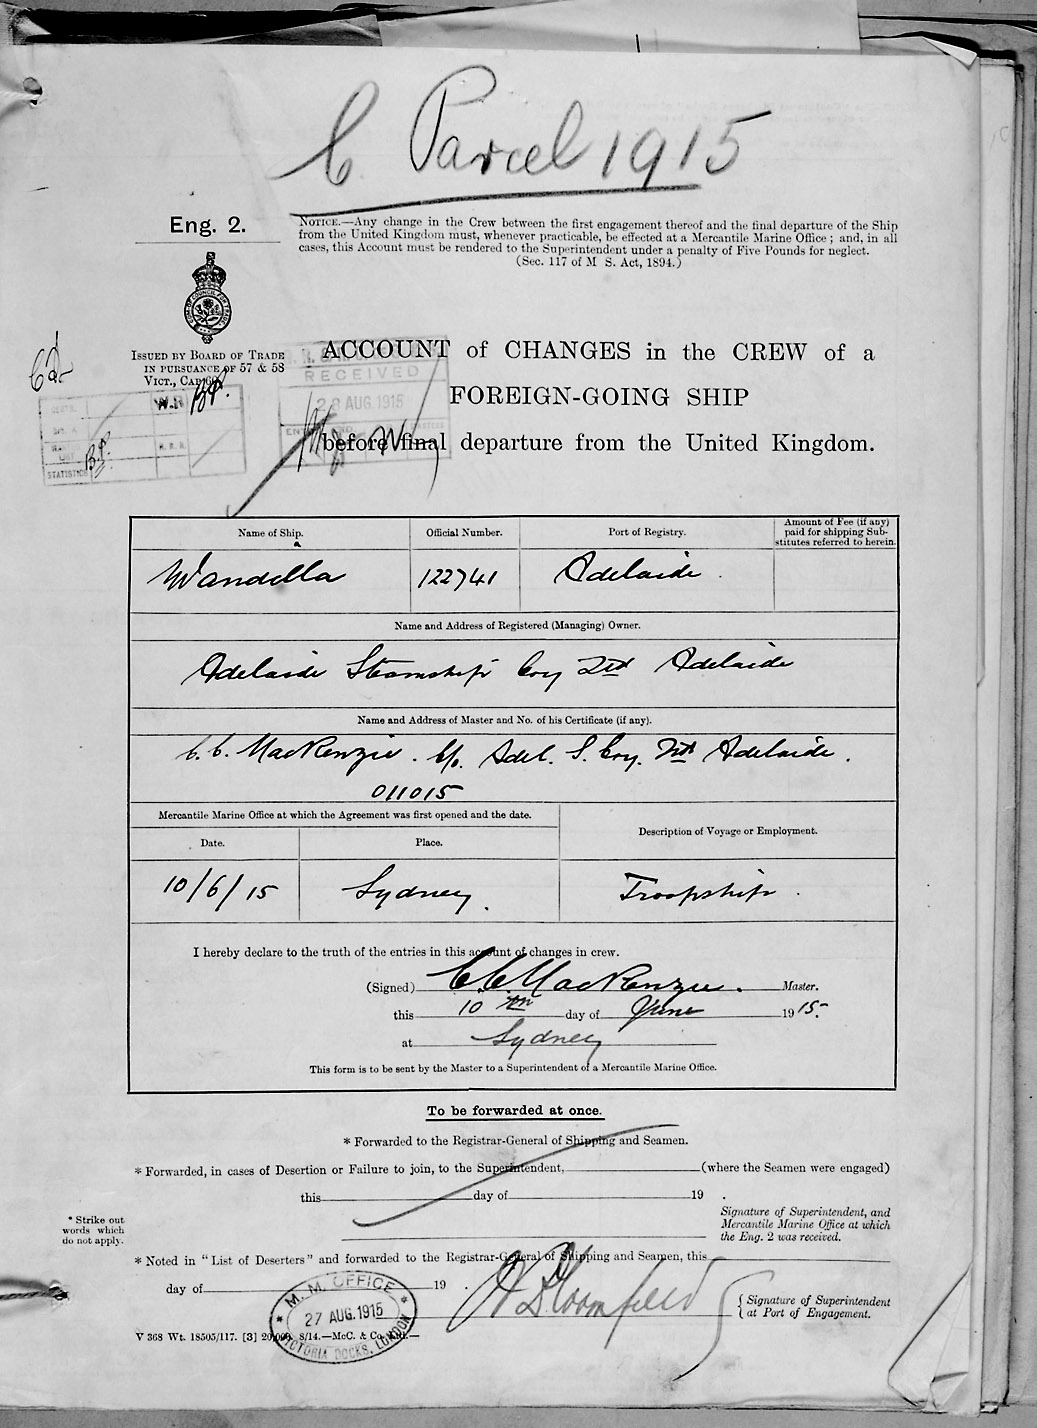 C Parcel 1915
Eng. 2.
NOTICE.—Any change in the Crew between the first engagement thereof and the final departure of the Ship
from the United Kingdom must, whenever practicable, be effected at a Mercantile Marine Office; and, in all
cases, this Account must be rendered to the Superintendent under a penalty of Five Pounds for neglect.
(Sec. 117 of M S. Act, 1894.)
ISSUED BY BOARD OF TRADE
IN PURSUANCE OF 57 & 58
VICT., CAP 60.
RECEIVED
28 AUG 1915
STATISTICS
ACCOUNT of CHANGES in the CREW of a
FOREIGN-GOING SHIP
before final departure from the United Kingdom.
Name of Ship.
Official Number.
Port of Registry.
Amount of Fee (if any)
paid for shipping Sub-
stitutes referred to herein.
Wandilla
122741
Adelaide
Name and Address of Registered (Managing) Owner.
Adelaide Steamship Coy Ltd Adelaide
Name and Address of Master and No. of his Certificate (if any).
C. C. MacKenzie. C/o. Adel. S. Coy. Ltd Adelaide.
011015
Mercantile Marine Office at which the Agreement was first opened and the date.
Description of Voyage or Employment.
Date.
Place.
10/6/15
Sydney.
Troopship.
I hereby declare to the truth of the entries in this account of changes in crew.
(Signed) C. C. MacKenzie. Master.
this 10th day of June 1915.
at Sydney
This form is to be sent by the Master to a Superintendent of a Mercantile Marine Office.
To be forwarded at once.
* Forwarded to the Registrar-General of Shipping and Seamen.
* Forwarded, in cases of Desertion or Failure to join, to the Superintendent, (where the Seamen were engaged)
this day of 19 .
* Strike out
words which
do not apply.
Signature of Superintendent, and
Mercantile Marine Office at which
the Eng. 2 was received.
* Noted in "List of Deserters" and forwarded to the Registrar-General of Shipping and Seamen, this
day of 19 .
Bloomfield
Signature of Superintendent
at Port of Engagement.
M. M. OFFICE
27 AUG. 1915
VICTORIA DOCKS, LONDON
V 368 Wt. 18505/117. [3] 20,000. 8/14.—McC. & Co. Ltd.—